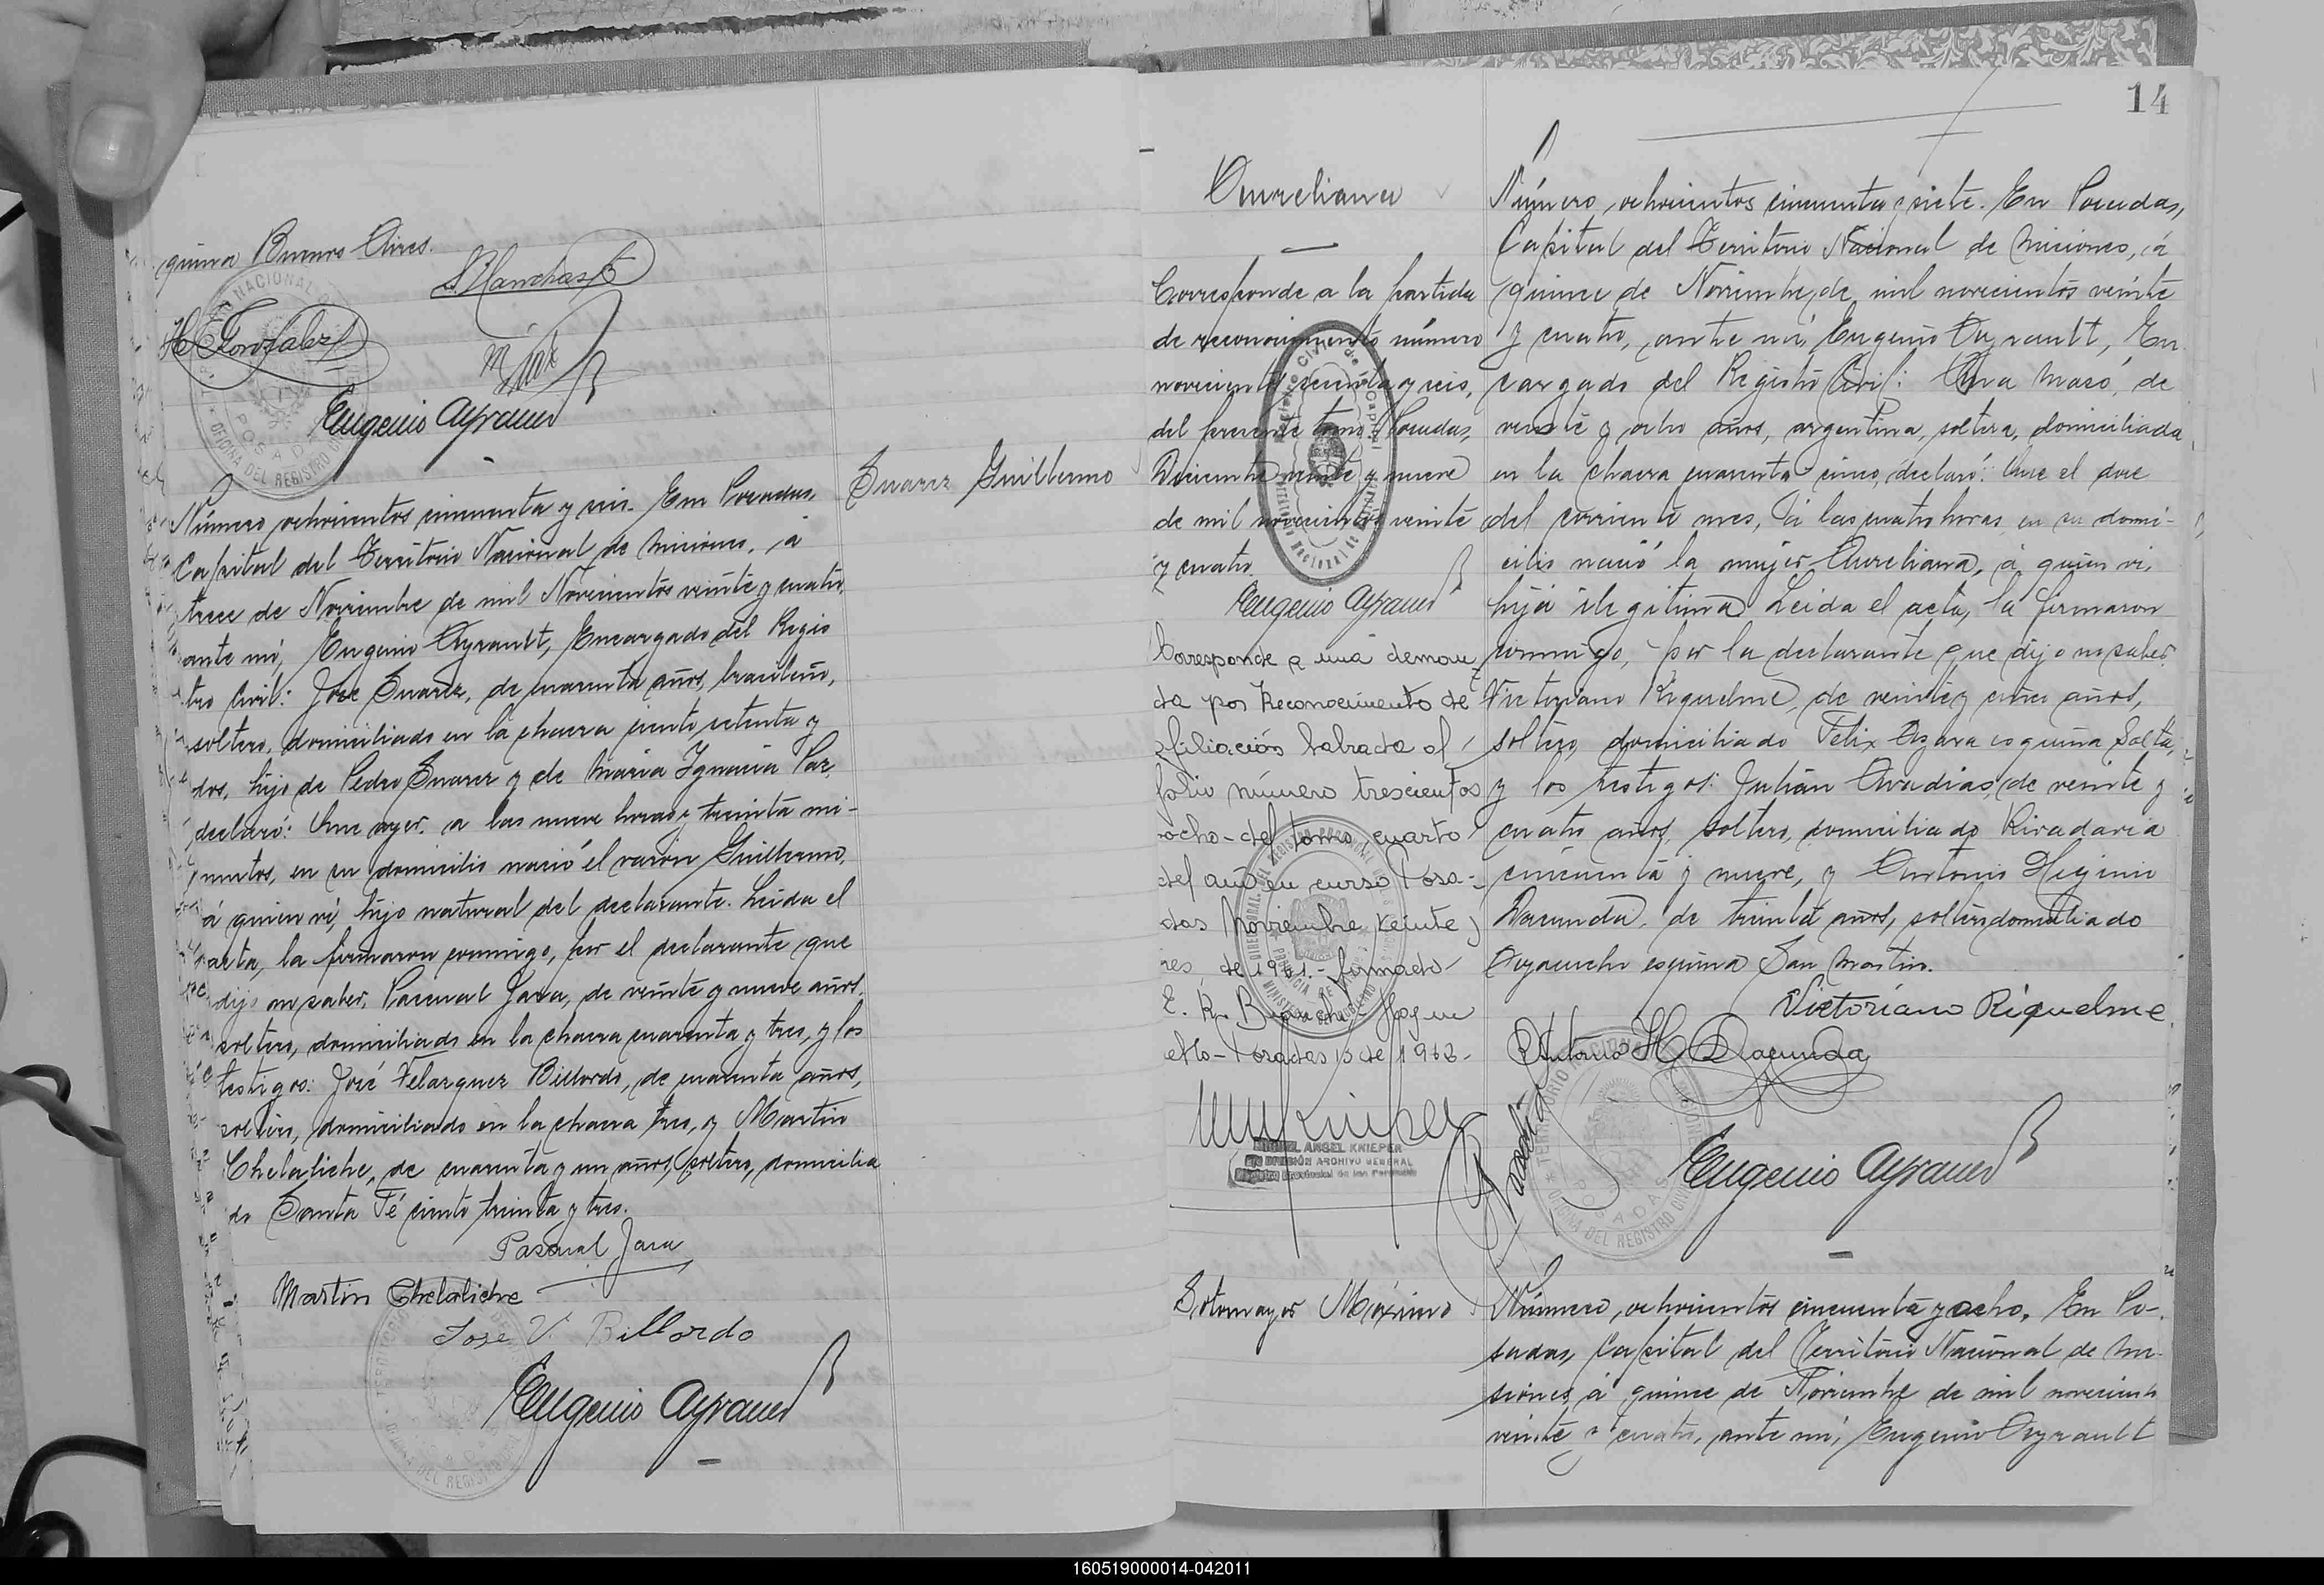 quina Buenos Aires.
S. Manchas
H. E. Gonzalez
Eugenio Ayrault
Número ochocientos cincuenta y seis. En Posadas,
Capital del Territorio Nacional de Misiones, á
trece de Noviembre de mil Novecientos veinte y cuatro,
ante mí, Eugenio Ayrault, Encargado del Regis
tro Civil: José Suarez, de cuarenta años, brasileño,
soltero, domiciliado en la chacra ciento setenta y
dos, hijo de Pedro Suarez y de Maria Ignacia Paz,
declaró: Que ayer, a las nueve horas y treinta mi-
nutos, en su domicilio nació el varón Guillermo,
á quien ví, hijo natural del declarante. Leida el
acta, la firmaron conmigo, por el declarante que
dijo no saber, Pascual Jara, de veinte y nueve años,
soltero, domiciliado en la chacra cuarenta y tres, y los
testigos: José Velazquez Billordo, de cuarenta años,
soltero, domiciliado en la chacra tres, y Martin
Chelaliche, de cuarenta y un años, soltero, domicilia
do Santa Fé ciento treinta y tres.
Pascual Jara
Martin Chelaliche
Jose V. Billordo
Eugenio Ayrault
Suarez Guillermo
14
Aureliana
Corresponde a la partida
de reconocimiento número
novecientos sesenta y seis,
del presente tomo Posadas,
Diciembre veinte y nueve
de mil novecientos veinte
y cuatro
Eugenio Ayrault
Corresponde a una deman
da por Reconocimiento de
filiación labrada al
folio número trescientos
ocho - del tomo cuarto
del año en curso Posa-
das Noviembre veinte y
res de 1961.- firmado
E. R. Bianchi
Posadas de 1962.-
MIGUEL ANGEL KNIEPER
DIVISIÓN ARCHIVO GENERAL
Registro Provincial de las Personas
Número, ochocientos cincuenta y siete. En Posadas,
Capital del Territorio Nacional de Misiones, á
quince de Noviembre, de mil novecientos veinte
y cuatro, ante mí, Eugenio Ayrault, En
cargado del Registro Civil: Ana Masó, de
veinte y ocho años, argentina, soltera, domiciliada
en la chacra cuarenta y cinco, declaró: Que el doce
del corriente mes, á las cuatro horas, en su domi-
cilio nació la mujer Aureliana, á quien ví,
hija ilegitima. Leida el acta, la firmaron
conmigo, por la declarante que dijo no saber,
Victoriano Riquelme, de veinte y cinco años,
soltero, domiciliado Felix Azara esquina Salta,
y los testigos: Julián Avadias, de veinte y
cuatro años, soltero, domiciliado Rivadavia
cincuenta y nueve, y Antonio Higinio
Dacunda, de treinta años, soltero, domiciliado
Ayacucho esquina San Martin.
Victoriano Riquelme
Antonio H. Dacunda
Eugenio Ayrault
Sotomayor Máximo
Número, ochocientos cincuenta y ocho. En Po-
sadas, Capital del Territorio Nacional de Mi-
siones, á quince de Noviembre de mil novecientos
veinte y cuatro, ante mí, Eugenio Ayrault
160519000014-042011